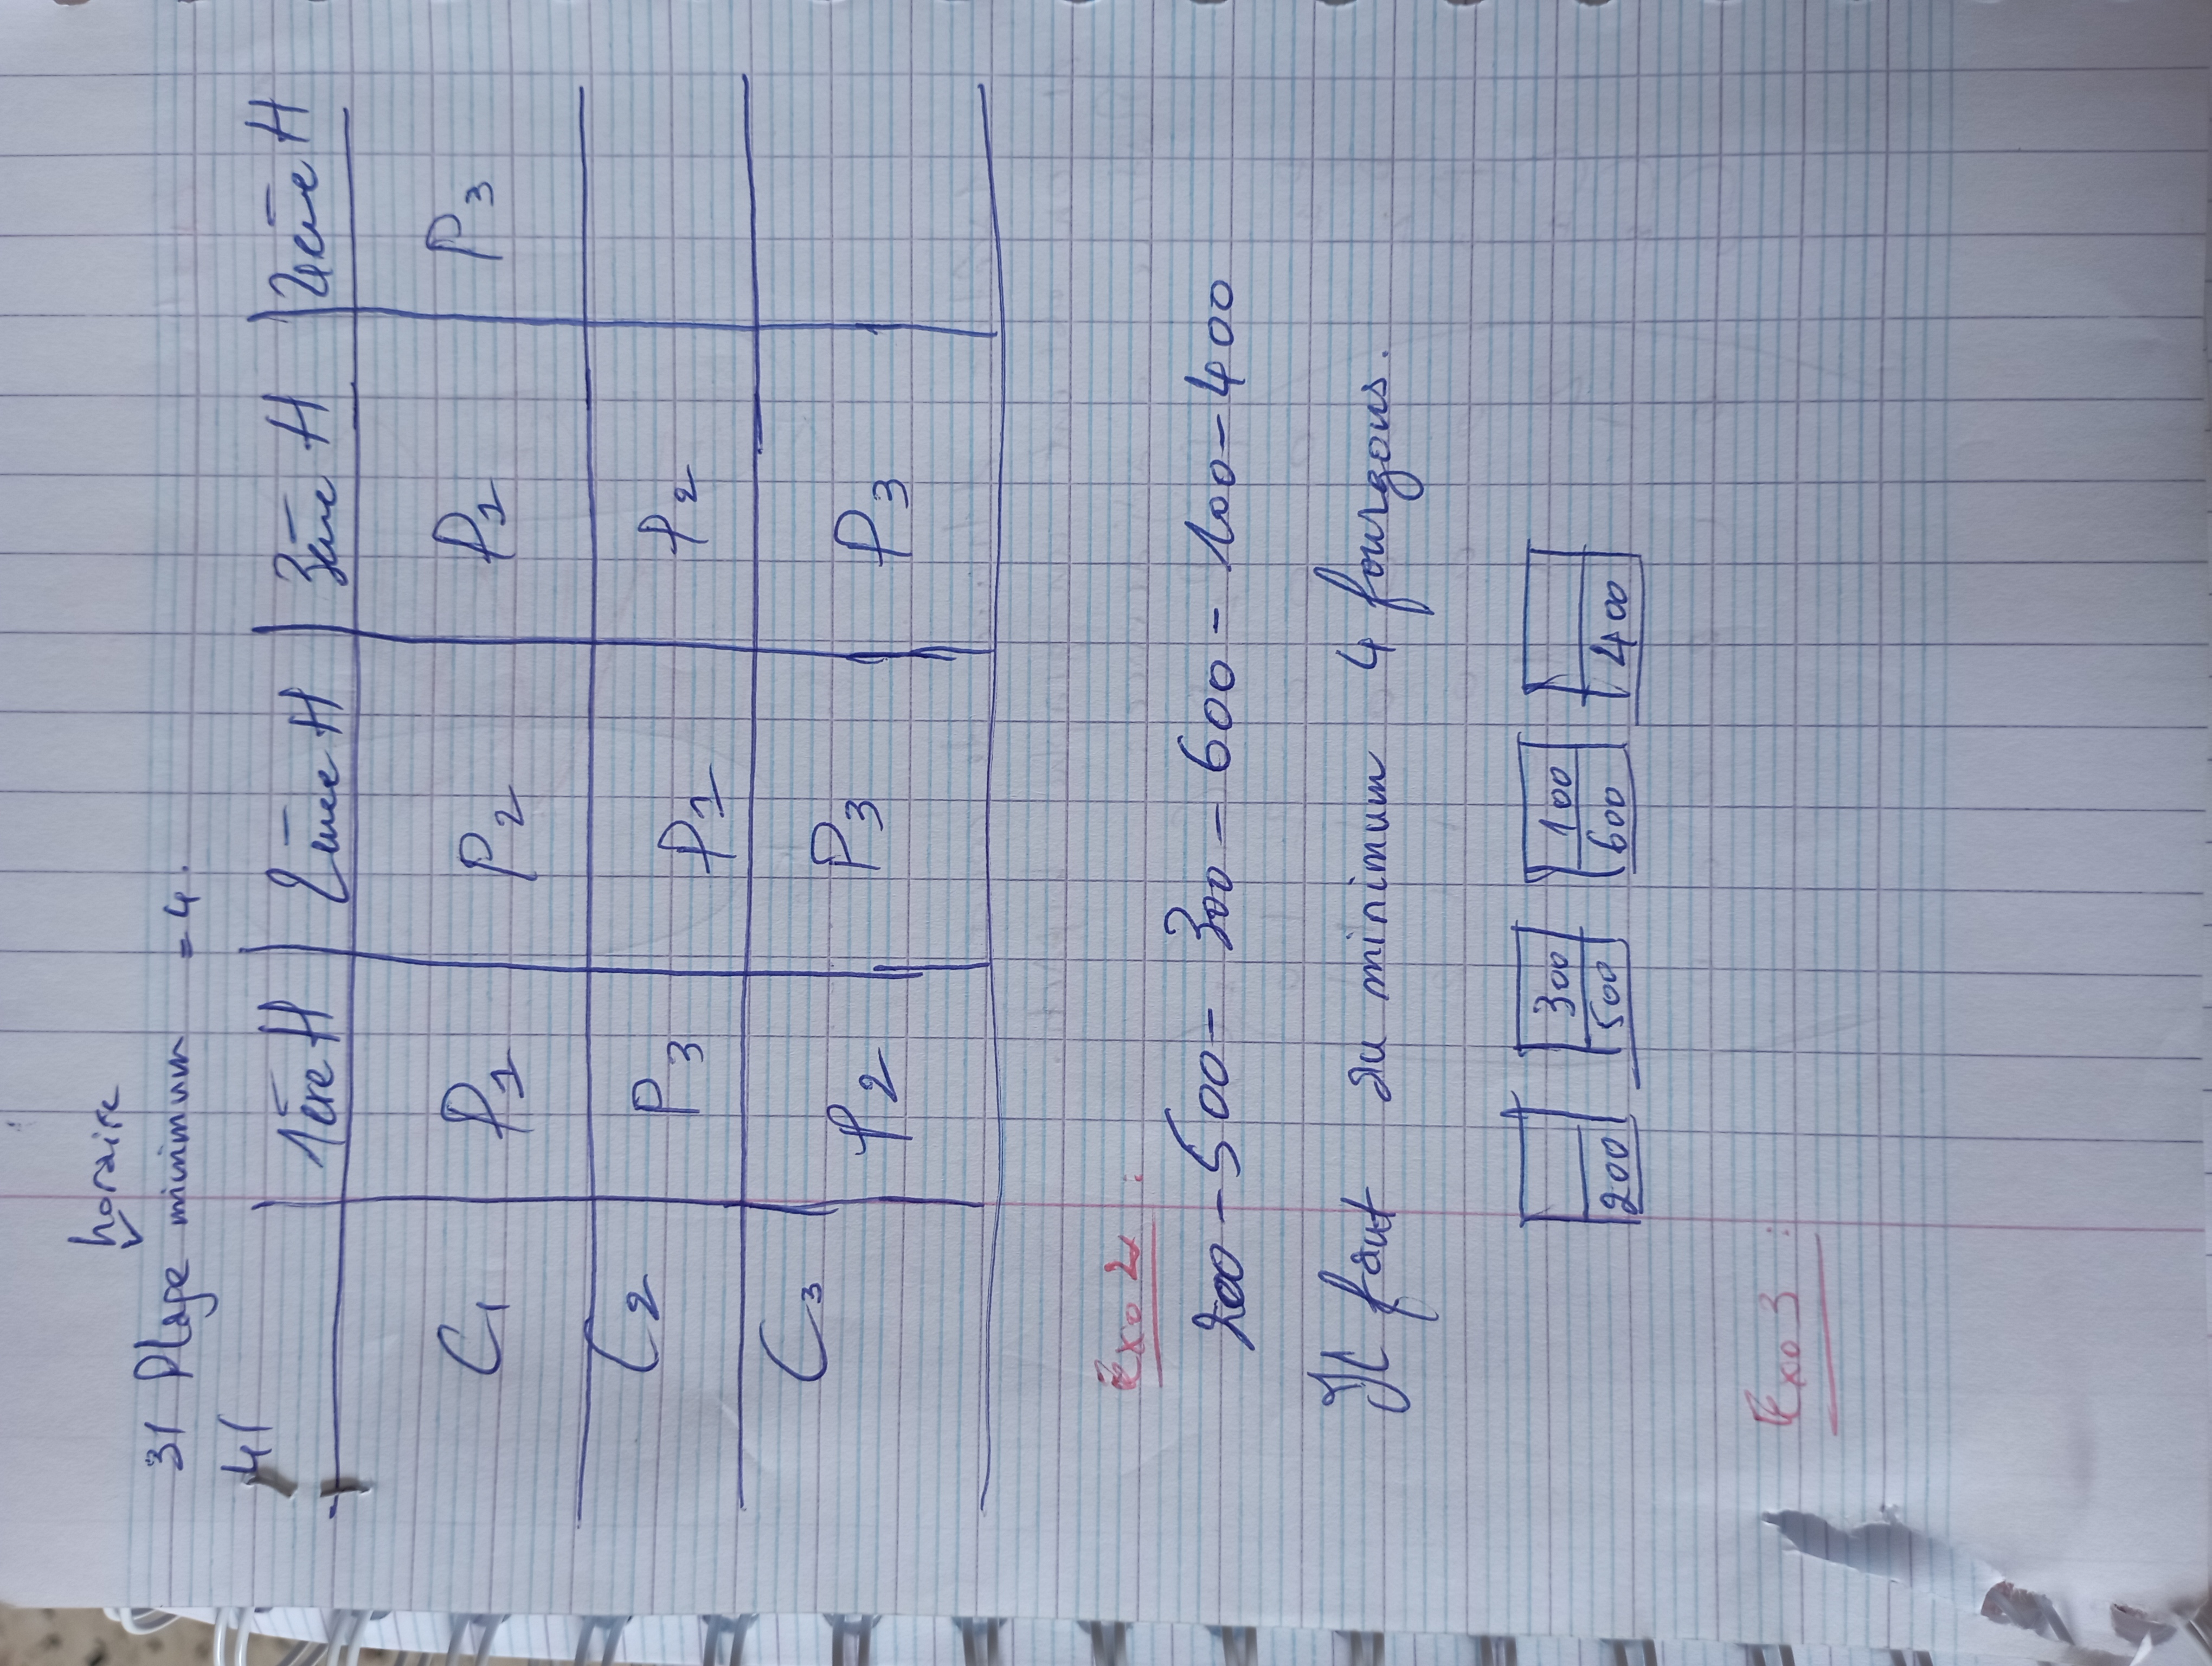 horaire
3/ Plage minimum = 4.
4/
1ère H 2ème H 3ème H 4ème H
C1 P1 P2 P1 P3
C2 P3 P1 P2
C3 P2 P3 P3
Exo 2 :
200 - 500 - 300 - 600 - 100 - 400
Il faut au minimum 4 fourgons.
300 100
200 500 600 400
Exo 3 :